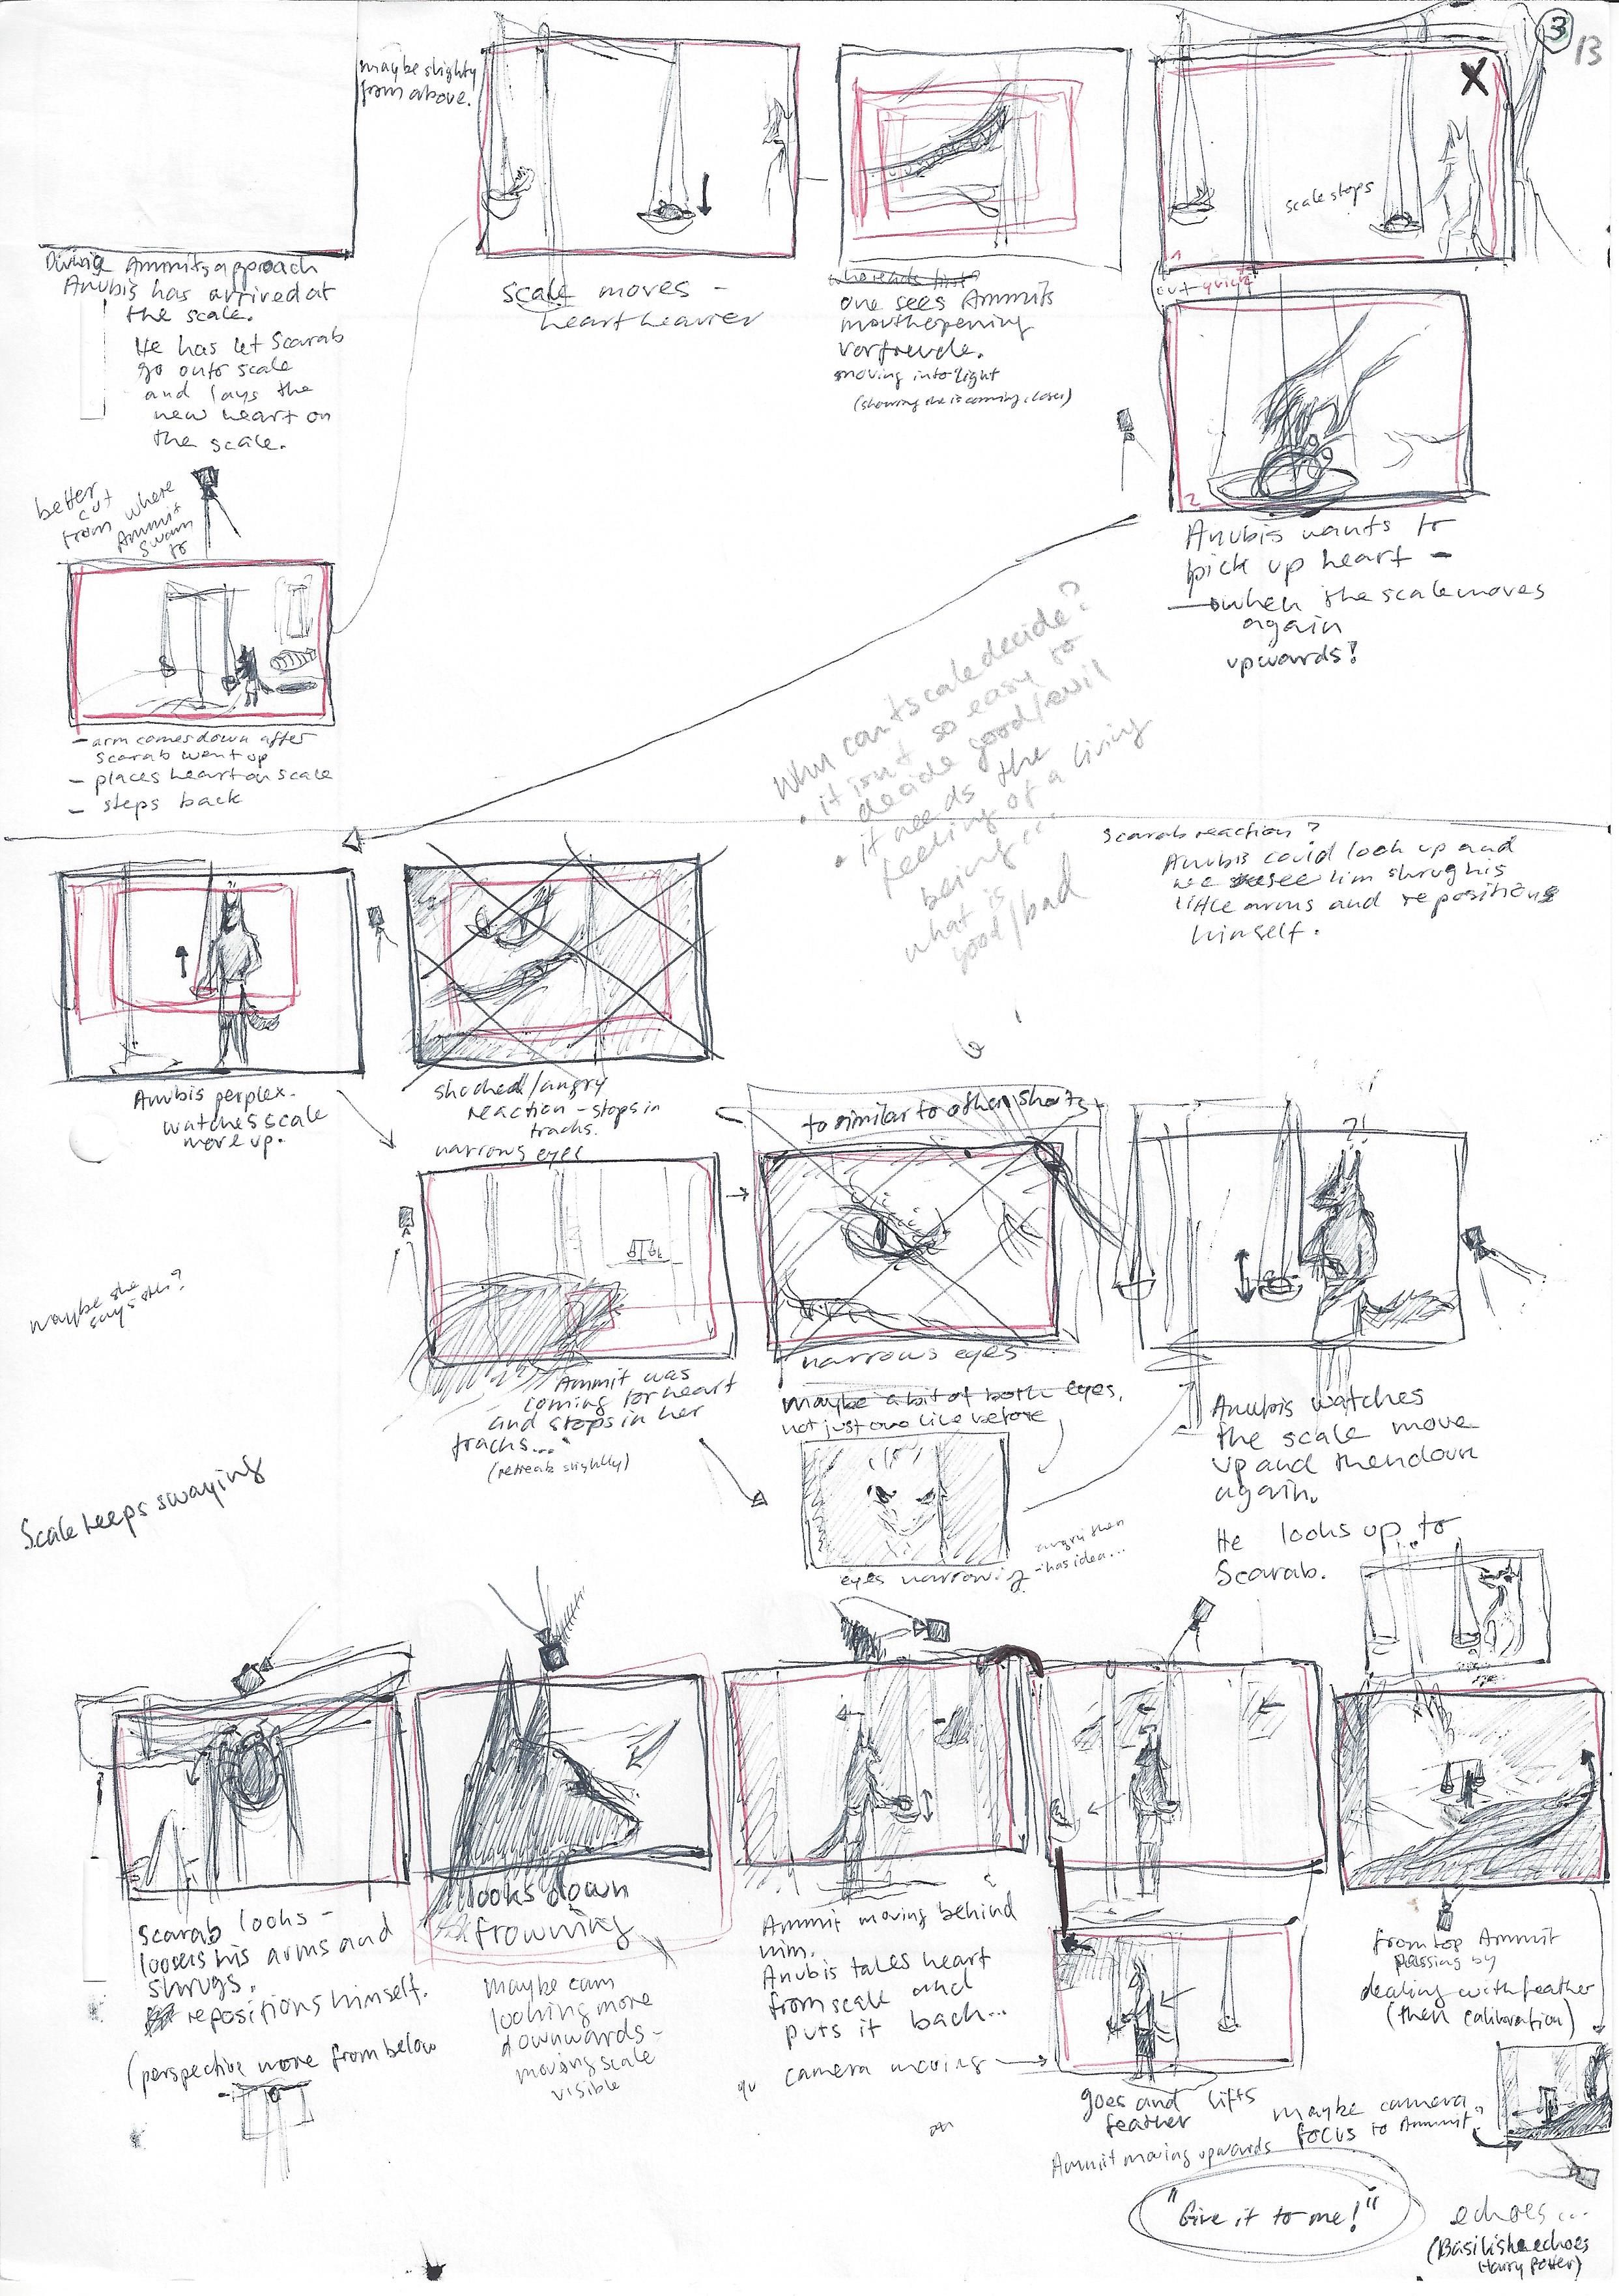 3
13
maybe slighty
from above.
X
scale stops
cut quick
1
2
During Ammits approach
Anubis has arrived at
the scale.
He has let Scarab
go onto scale
and lays the
new heart on
the scale.
scale moves -
heart heavier
one sees Ammits
mouth opening
vorfreude.
moving into light
(showing she is coming closer)
Anubis wants to
pick up heart -
when the scale moves
again
upwards!
better
cut
from where
Ammit
swam
to
- arm comes down after
Scarab went up
- places heart on scale
- steps back
Why can't scale decide?
• it isn't so easy to
decide good/evil
• it needs the
feeling of a living
being...
what is
good/bad
Scarab reaction?
Anubis could look up and
we see him shrug his
little arms and repositions
himself.
Anubis perplex.
watches scale
move up.
shocked/angry
reaction - stops in
tracks.
narrows eyes
to similar to other shots
?!
maybe she
says sth?
Ammit was
coming for heart
and stops in her
tracks...
(retreats slightly)
narrows eyes
maybe a bit of both eyes,
not just one like before
Anubis watches
the scale move
up and then down
again.
He looks up to
Scarab.
angry then
- has idea...
eyes narrowing
Scale keeps swaying
Scarab looks -
loosens his arms and
shrugs.
repositions himself.
(perspective more from below
looks down
frowning
maybe cam
looking more
downwards -
moving scale
visible
Ammit moving behind
him.
Anubis takes heart
from scale and
puts it back...
camera moving
goes and lifts
feather
Ammit moving upwards
from top Ammit
passing by
dealing with feather
(then calibration)
maybe camera
focus to Ammit?
"Give it to me!"
echoes...
(Basiliske echoes
Harry Potter)